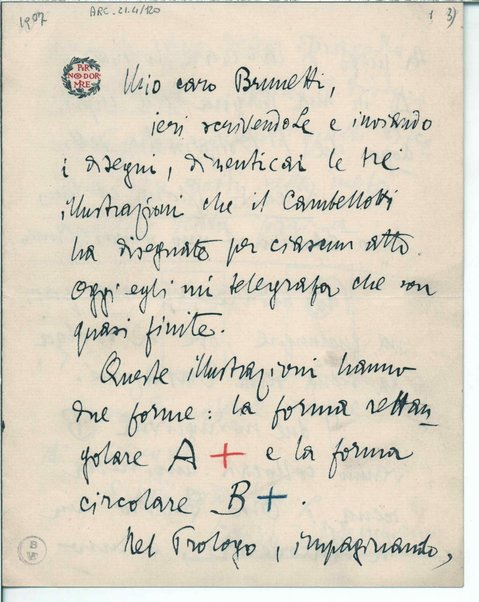 1907
ARC. 21.4/120
1 3)
PER
NON DOR
MIRE
Mio caro Brunetti,
ieri scrivendoLe e inviando
i disegni, dimenticai le tre
illustrazioni che il Cambellotti
ha disegnate per ciascun atto.
Oggi egli mi telegrafa che son
quasi finite.
Queste illustrazioni hanno
due forme: la forma rettan
golare A + e la forma
circolare B +.
Nel Prologo, impaginando,